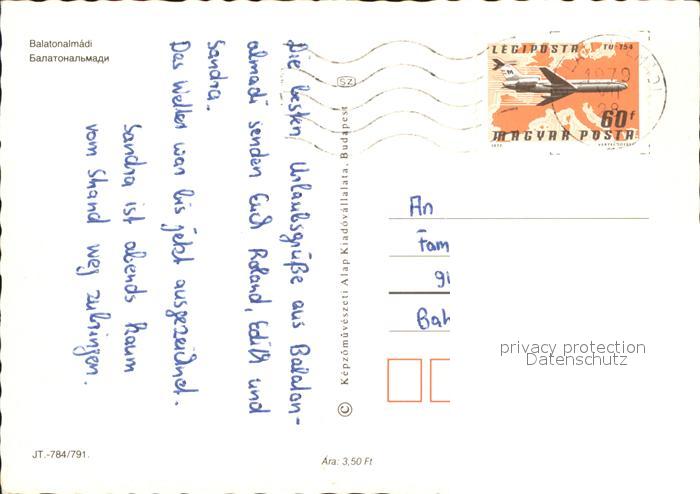 Balatonalmádi
Балатональмади
Die besten Urlaubsgrüße aus Balaton-
almadi senden Euch Roland, Edith und
Sandra.
Das Wetter war bis jetzt ausgezeichnet.
Sandra ist abends kaum
vom Strand weg zubringen.
SZ
© Képzőművészeti Alap Kiadóvállalata, Budapest
LÉGIPOSTA TU-154
60f
MAGYAR POSTA
1979
28
An
Fam
gi
Bah
privacy protection
Datenschutz
JT.-784/791.
Ára: 3,50 Ft